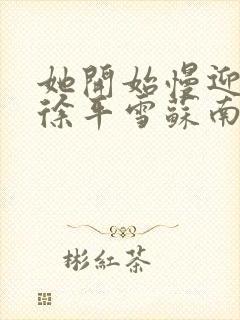 她開始慢迎
徐平雪蘇南
彬紅茶